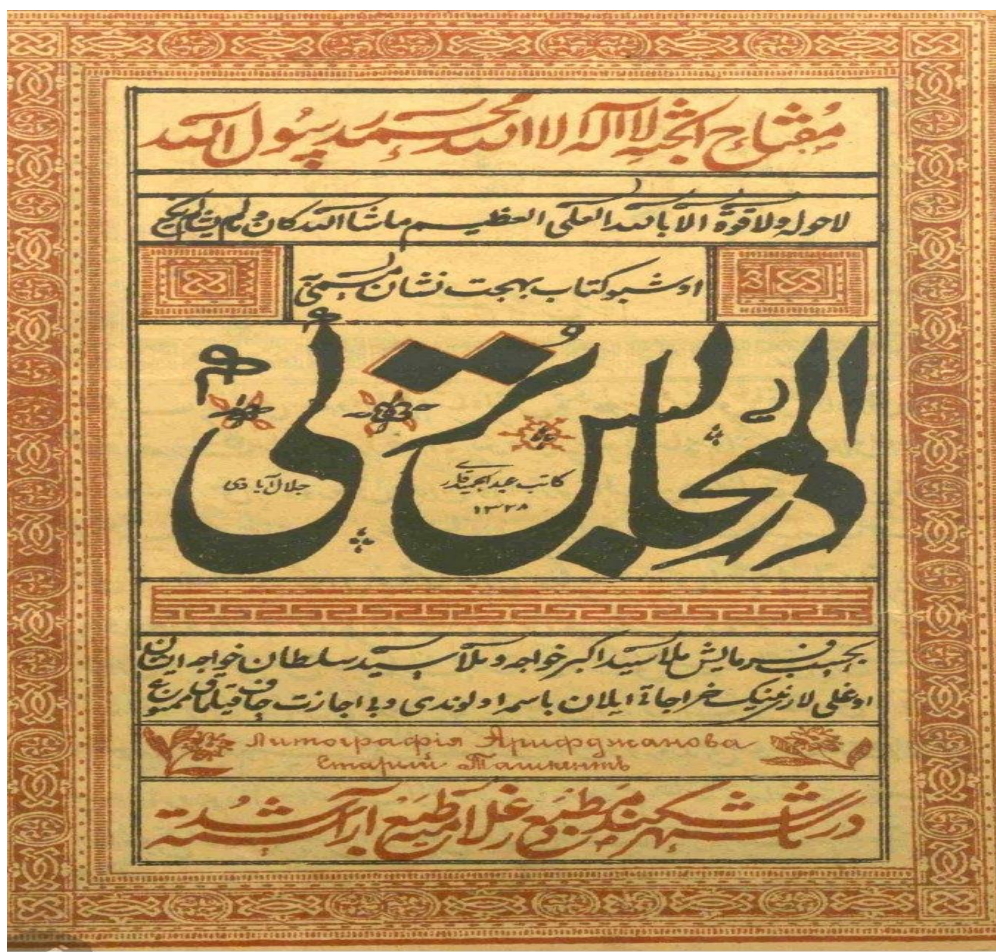 مفتاح الجنة لااله الا الله محمد رسول الله
لاحول ولاقوة الا بالله العلی العظیم ماشاالله کان ولم یشا لم یکن
اوشبو کتاب بهجت نشان مسمی
در المجالس ترکی
کاتب عبدالحمید قاری
۱۳۲۸
جلال آبادی
بحسب فرمایش ملا سید اکبر خواجه و ملا سید سلطان خواجه ایشان
اوغلی لارینینک خراجاة ایلان باسمه اولوندی و بی اجازت چاف قیلماق ممنوع
Литографія Арифджанова
Старый Ташкентъ
در شهر تاشکند مطبع طبع آراسته شد